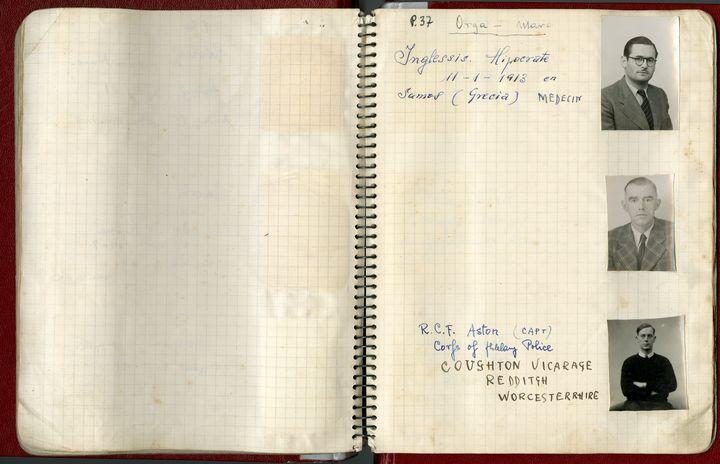 P.37 Orga - Marc
Inglessis. Hipocrate
11-1-1913 en
Samos (Grecia) MEDECIN
R.C.F. Aston (CAPT)
Corps of Military Police
COUGHTON VICARAGE
REDDITGH
WORCESTERRHIRE